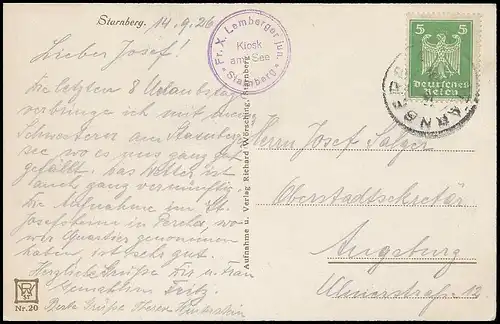 Starnberg. 14.9.26
Lieber Josef!
Die letzten 8 Urlaubstage
verbringe ich mit meiner
Schwester am Starnberger
see, wo es uns ganz gut
gefällt. Das Wetter ist
auch ganz vernünftig.
Die Aufnahme im St.
Josefsheim in Percha, wo
wir Quartier genommen
haben, ist sehr gut.
Herzliche Grüße Dir u. Frau
Gemahlin Fritz.
Beste Grüße
Nr. 20
Fr. X. Lemberger jun.
Kiosk
am See
* Starnberg *
Aufnahme u. Verlag Richard Wörsching, Starnberg
5 5
Deutsches
Reich
STARNBERG
Herrn Josef Salger
Oberstadtsekretär
Augsburg
Ulmerstraße 13